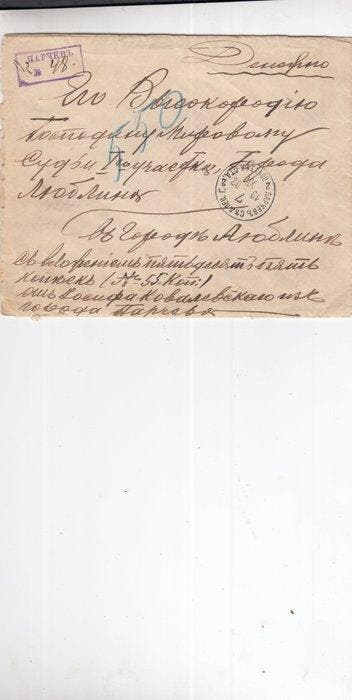 ПАРЧЕВЪ
№ 48.
Денежно
Его Высокородію
Господину Мировому
Судьи участка Города
Люблина
въ городъ Люблинъ
съ вложеніемъ пятьдесятъ пять
копѣекъ (№ 55 Коп.)
отъ Іосифа Ковалевскаго изъ
города Парчева